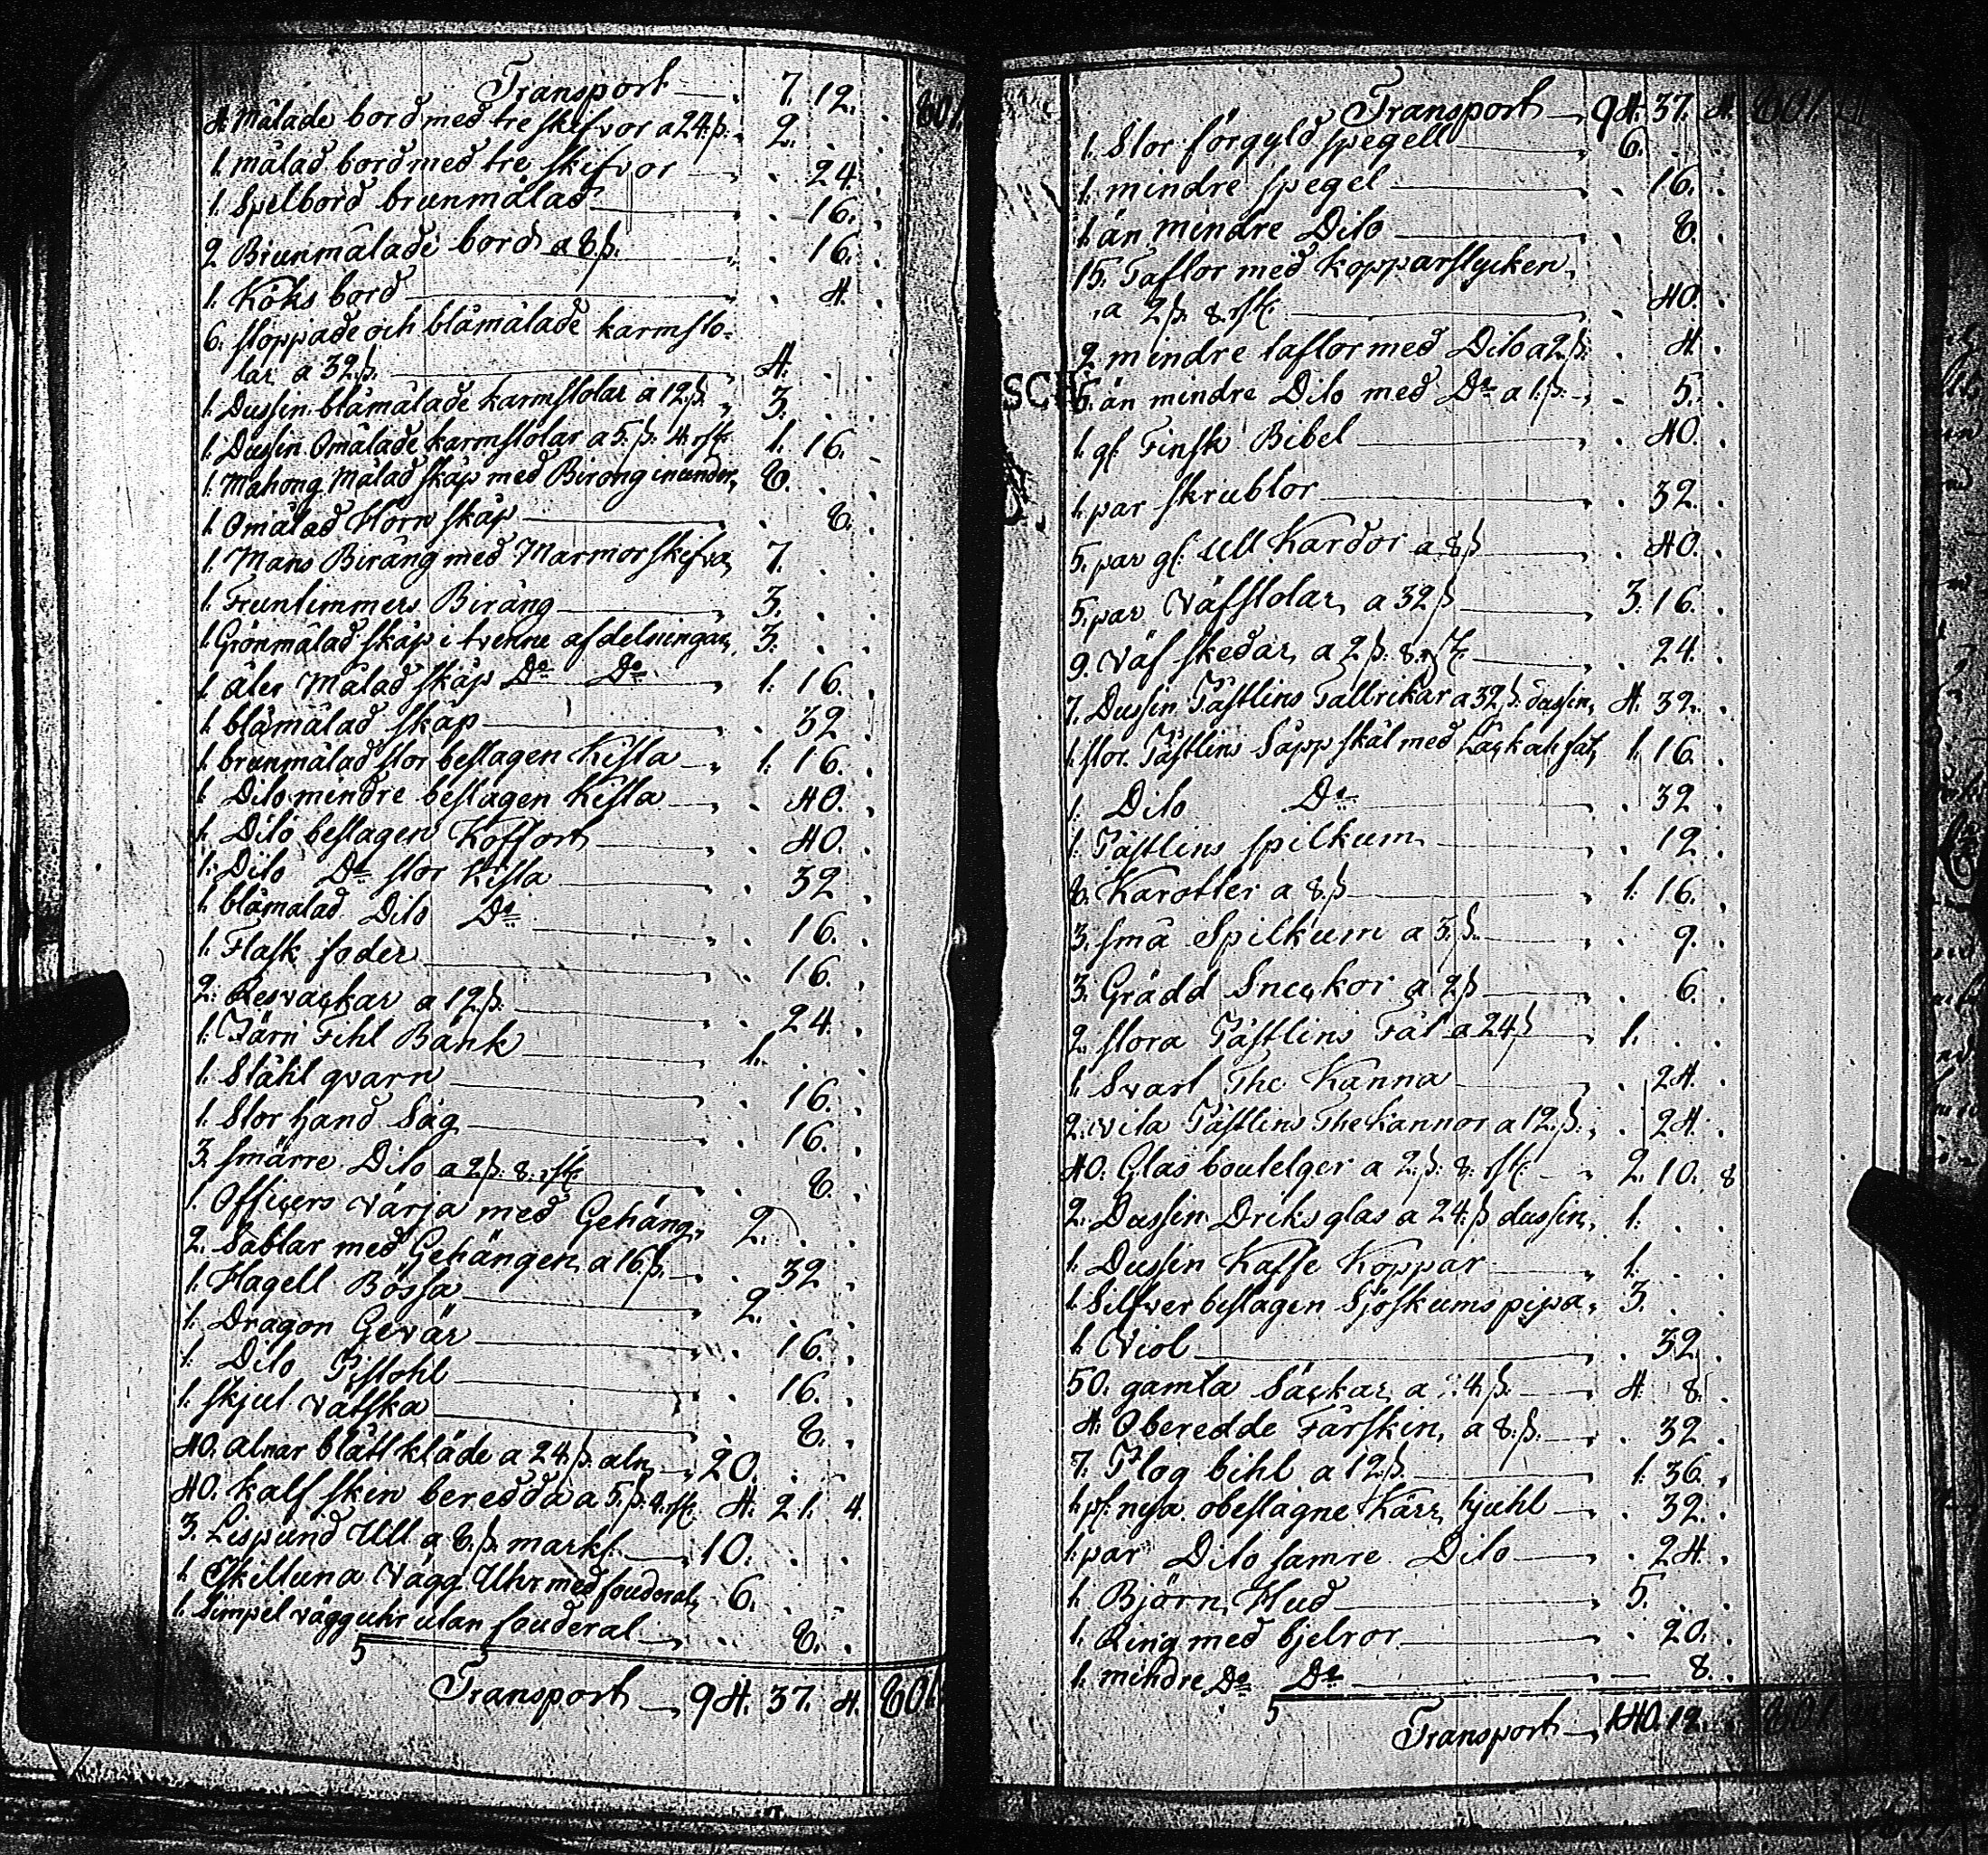 Transport — 7. 12. 801.
4. Målade bord med tre skifvor a 24. ß. 2.
1. målad bord med tre skifvor — 24.
1. Spelbord brunmålad — 16.
2 Brunmålade bord a 8. ß. — 16.
1. Köks bord — 4.
6. stoppade och blåmålade karmsto-
lar a 32. ß. — 4.
1. Dussin blåmålade karmstolar a 12. ß. 3.
1. Dussin Omålade karmstolar a 5. ß. 4. rst. 1. 16.
1. Mahong Målad skåp med Birong inunder, 8.
1. Omålad Hörn skåp — 8.
1. Mans Birång med Marmor skifva, 7.
1. Fruntimmers Birång — 3.
1. Grönmålad skåp i tvenne afdelningar, 3.
1. åler Målad skåp Do Do — 1. 16.
1. blåmålad skåp — 32
1. brunmålad stor beslagen Kista — 1. 16.
1. Dito mindre beslagen Kista — 40.
1. Dito beslagen Koffort — 40.
1. Dito Do stor Kista — 32
1. blåmalad Dito Do — 16.
1. Flask foder — 16.
2. Resvackar a 12. ß. — 24.
1. Järn Fihl Bänk — 1.
1. Ståhl qvarn — 16.
1. Stor hand Såg — 16.
3. smärre Dito a 2. ß. 8. rst. — 8.
1. Officers värja med Gehäng, 2.
2. Sablar med Gehängen, a 16 ß. — 32
1. Hagell Bössa — 2.
1. Dragon Gevär — 16.
1. Dito Pistohl — 16.
1. skjut vätska — 8.
40. alnar blått kläde a 24. ß. aln — 20.
40. kalf skin beredda a 5. ß. 4. rst. 4. 21. 4.
3. Lispund Ull a 8. ß. markt. — 10.
1. Eskilluna Vägg Uhr med fouderal, 6.
1. Simpel vägguhr utan fouderal — 8.
Transport — 94. 37. 4. 801.
Transport — 94. 37. 4. 801.
1. Stor förgyld spegell — 6.
1. mindre spegel — 16.
1. än mindre Dito — 8.
15. Taflor med kopparstycken,
a 2 ß. 8. rst. — 40.
2 mindre taflor med Dito a 2. ß. 4.
5. än mindre Dito med Do a 1. ß. — 5.
1. gl. Finsk Bibel — 40.
1. par skrublor — 32.
5. par gl. Ull Kardor a 8 ß — 40.
5. par Väfstolar, a 32 ß — 3. 16.
9. Väf skedar, a 2 ß. 8. rst. — 24.
7. Dussin Påstlins Tallrikar a 32 ß. dussin, 4. 32.
1. stor Påstlins Såpp skål med Låck och fat, 1. 16.
1. Dito Do — 32
1. Påstlins spilkum — 12
8. Karotter a 8. ß — 1. 16.
3. små Spilkum a 3. ß. — 9.
3. Grädd Sneckor a 2 ß — 6.
2. stora Påstlins Fat a 24 ß — 1.
1. Svart The Kanna — 24.
2. vita Påstlins The kannor a 12. ß. 24.
40. Glas boutelger a 2. ß. 8. rst. — 2. 10. 8
2. Dussin Driks glas a 24. ß dussin, 1.
1. Dussin Kaffe Koppar — 1.
1. Silfver beslagen Sjöskums pipa, 3.
1. Viol — 32.
50. gamla Säckar, a 4. ß. — 4. 8.
4. Oberedde Fårskin, a 8. ß. — 32
7. Plog bihl a 12. ß. — 1. 36.
1. pl. nya obeslagne Karr, hjuhl — 32.
1. par Dito samre Dito — 24.
1. Björn, Hud — 5.
1. Ring med bjelror — 20.
1. mindre Do Do — 8.
Transport — 140. 12. 801.